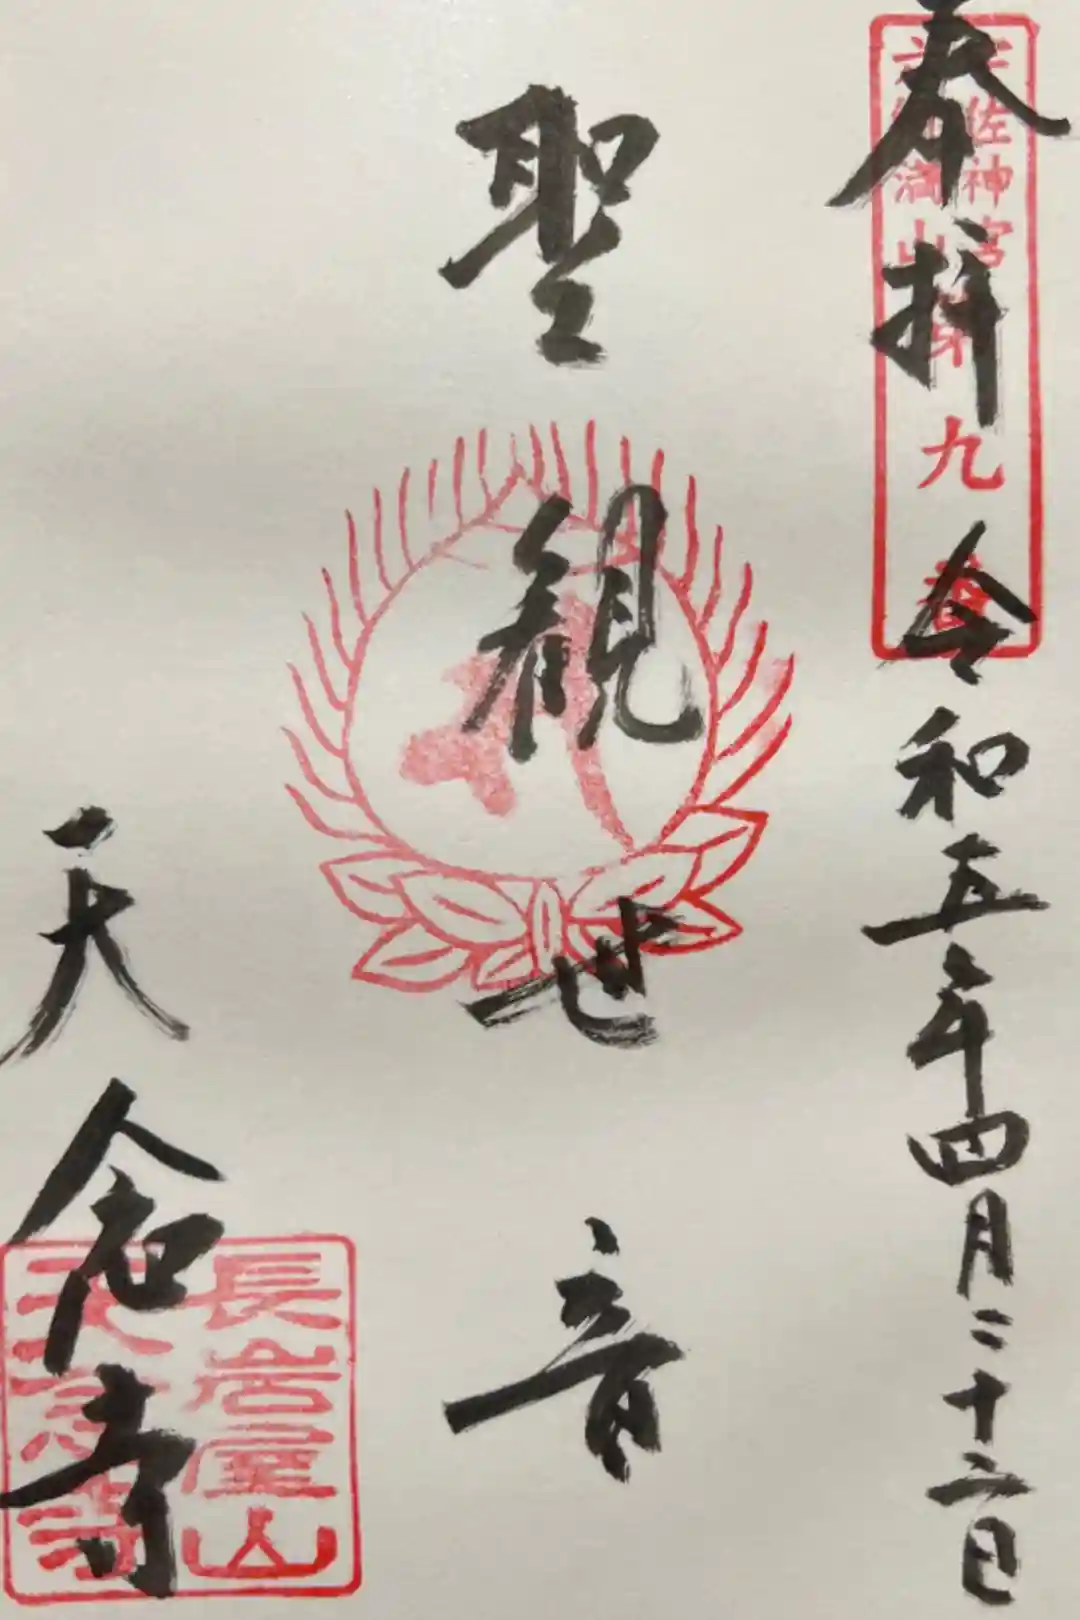 奉拝
令和五年四月二十二日
宇佐神宮
六郷満山
第九番
聖観世音
天念寺
長岩屋山
天念寺